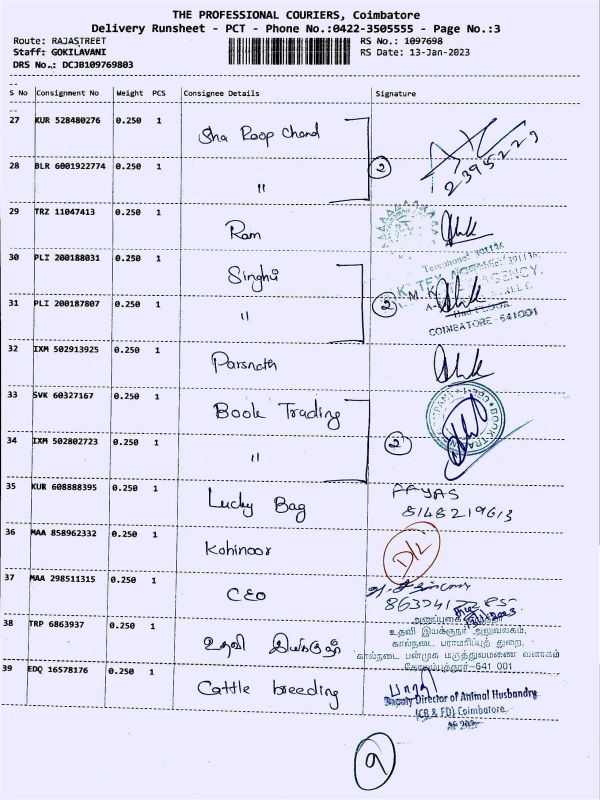 THE PROFESSIONAL COURIERS, Coimbatore
Delivery Runsheet - PCT - Phone No.:0422-3505555 - Page No.:3
Route: RAJASTREET RS No.: 1097698
Staff: GOKILAVANI RS Date: 13-Jan-2023
DRS No.: DCJB109769803
S No Consignment No Weight PCS Consignee Details Signature
27 KUR 528480276 0.250 1 Sha Roop Chand
2395223
28 BLR 6001922774 0.250 1 " 2
29 TRZ 11047413 0.250 1 Ram
30 PLI 200188031 0.250 1 Singhi
31 PLI 200187807 0.250 1 " 2
COIMBATORE-641001
32 IXM 502913925 0.250 1 Parsnath
33 SVK 60327167 0.250 1 Book Trading
34 IXM 502802723 0.250 1 " 2
35 KUR 608888395 0.250 1 Lucky Bag
8148219613
36 MAA 858962332 0.250 1 Kohinoor D/L
37 MAA 298511315 0.250 1 CEO
38 TRP 6863937 0.250 1 உதவி இயக்குநர்
உதவி இயக்குநர் அலுவலகம்,
கால்நடை பராமரிப்புத் துறை,
கால்நடை பன்முக மருத்துவமனை வளாகம்
கோயம்புத்தூர்-641 001
39 EDQ 16578176 0.250 1 Cattle breeding
Deputy Director of Animal Husbandry
(CB & FD) Coimbatore
9